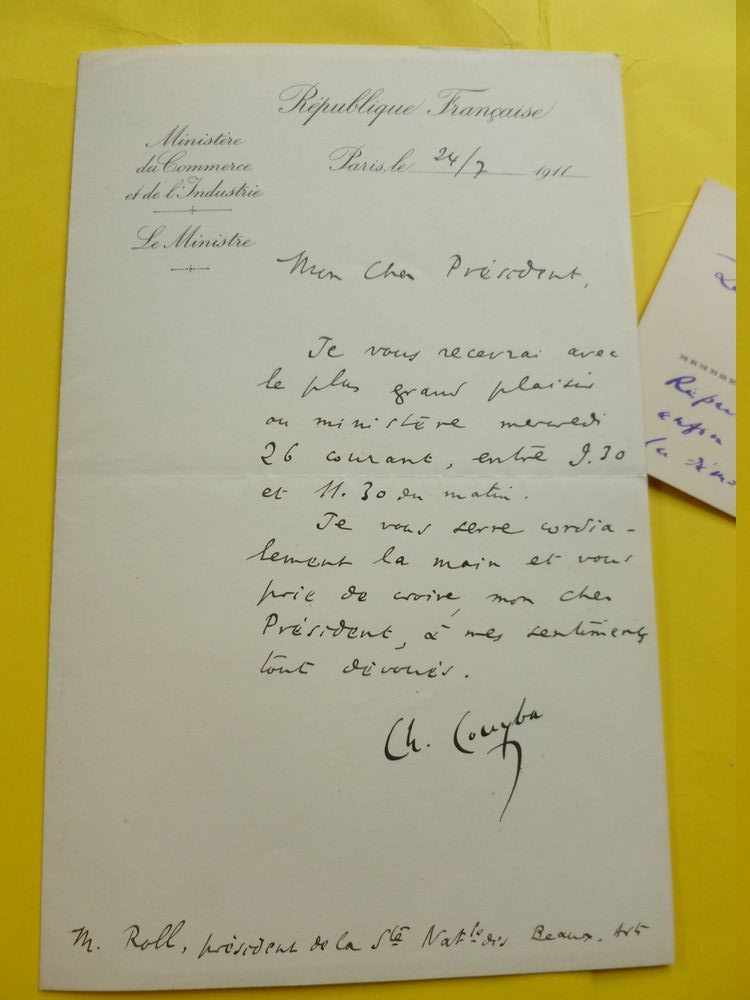 République Française
Ministère
du Commerce
et de l'Industrie
Le Ministre
Paris, le 24/7 1911
Mon cher Président,
Je vous recevrai avec
le plus grand plaisir
au ministère mercredi
26 courant, entre 9.30
et 11.30 du matin.
Je vous serre cordia-
lement la main et vous
prie de croire, mon cher
Président, à mes sentiments
tout dévoués.
Ch. Couyba
M. Roll, président de la Sté Natle des Beaux-Arts
MEMBRE